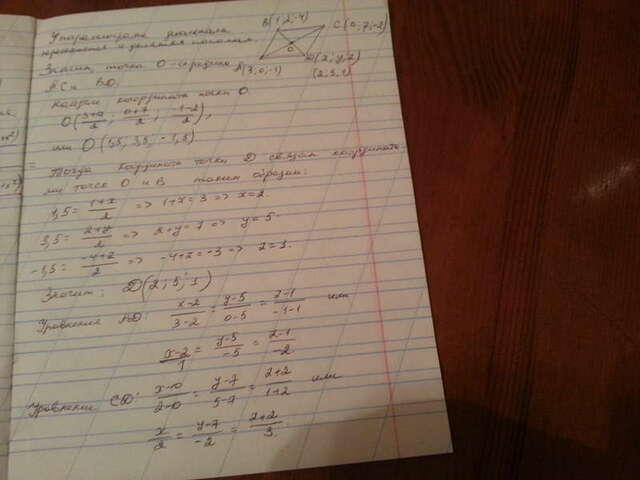 У параллелограмма диагонали
пересекаются и делятся пополам.
Значит, точка O - середина
AC и BD.
Найдём координаты точки O
O(3+0/2; 0+7/2; -1-2/2),
или O(1,5; 3,5; -1,5).
Тогда координаты точки D связаны координата-
ми точек O и B таким образом:
1,5 = 1+x/2 => 1+x=3 => x=2.
3,5 = 2+y/2 => 2+y=7 => y=5.
-1,5 = -4+z/2 => -4+z=-3 => z=1.
Значит: D(2; 5; 1)
Уравнение AD: x-2/3-2 = y-5/0-5 = z-1/-1-1 или
x-2/1 = y-5/-5 = z-1/-2.
Уравнение CD: x-0/2-0 = y-7/5-7 = z+2/1+2 или
x/2 = y-7/-2 = z+2/3.
B(1;2;-4)
C(0;7;-2)
O
A(3;0;-1)
D(x;y;z)
(2;5;1)